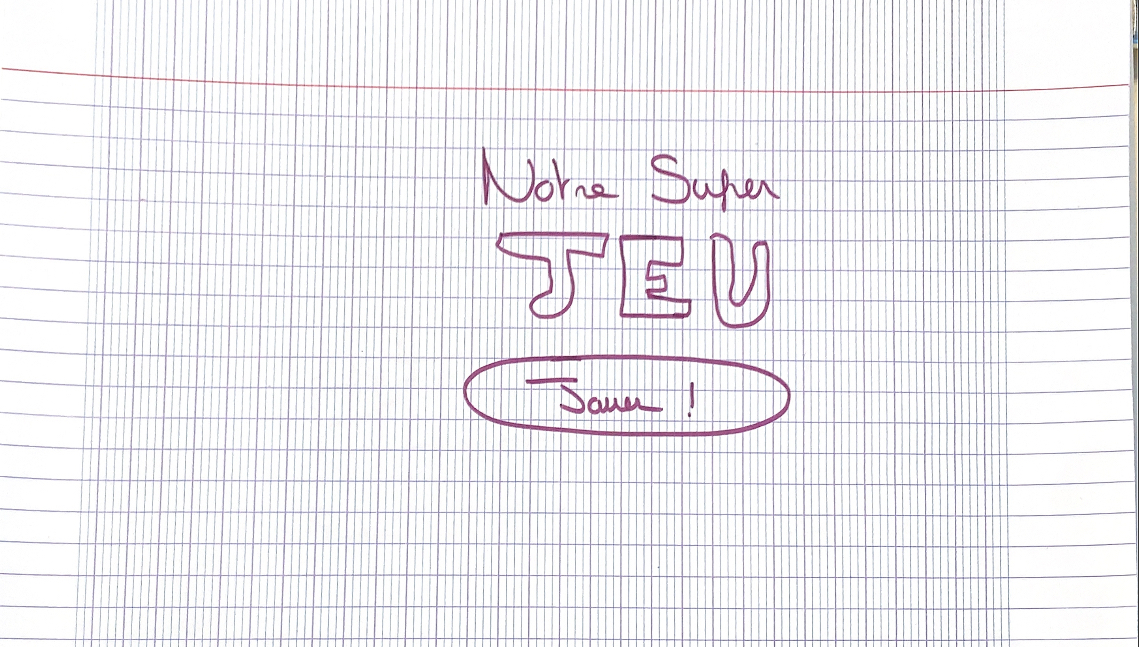 Notre Super
JEU
Jouer !